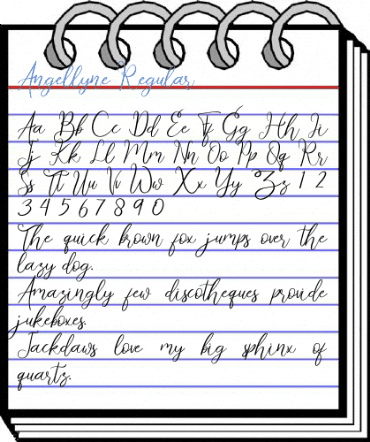 Angellyne Regular
Aa Bb Cc Dd Ee Ff Gg Hh Ii
Jj Kk Ll Mm Nn Oo Pp Qq Rr
Ss Tt Uu Vv Ww Xx Yy Zz 1 2
3 4 5 6 7 8 9 0
The quick brown fox jumps over the
lazy dog.
Amazingly few discotheques provide
jukeboxes.
Jackdaws love my big sphinx of
quartz.